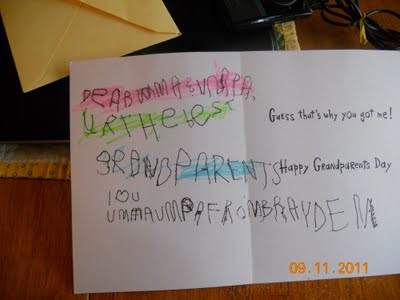 DEAR UMMA & UMPA,
U R THE BEST
GRANDPARENTS
I U
UMMA UMPA FROM BRAYDEN
Guess that's why you got me!
Happy Grandparents Day
09.11.2011